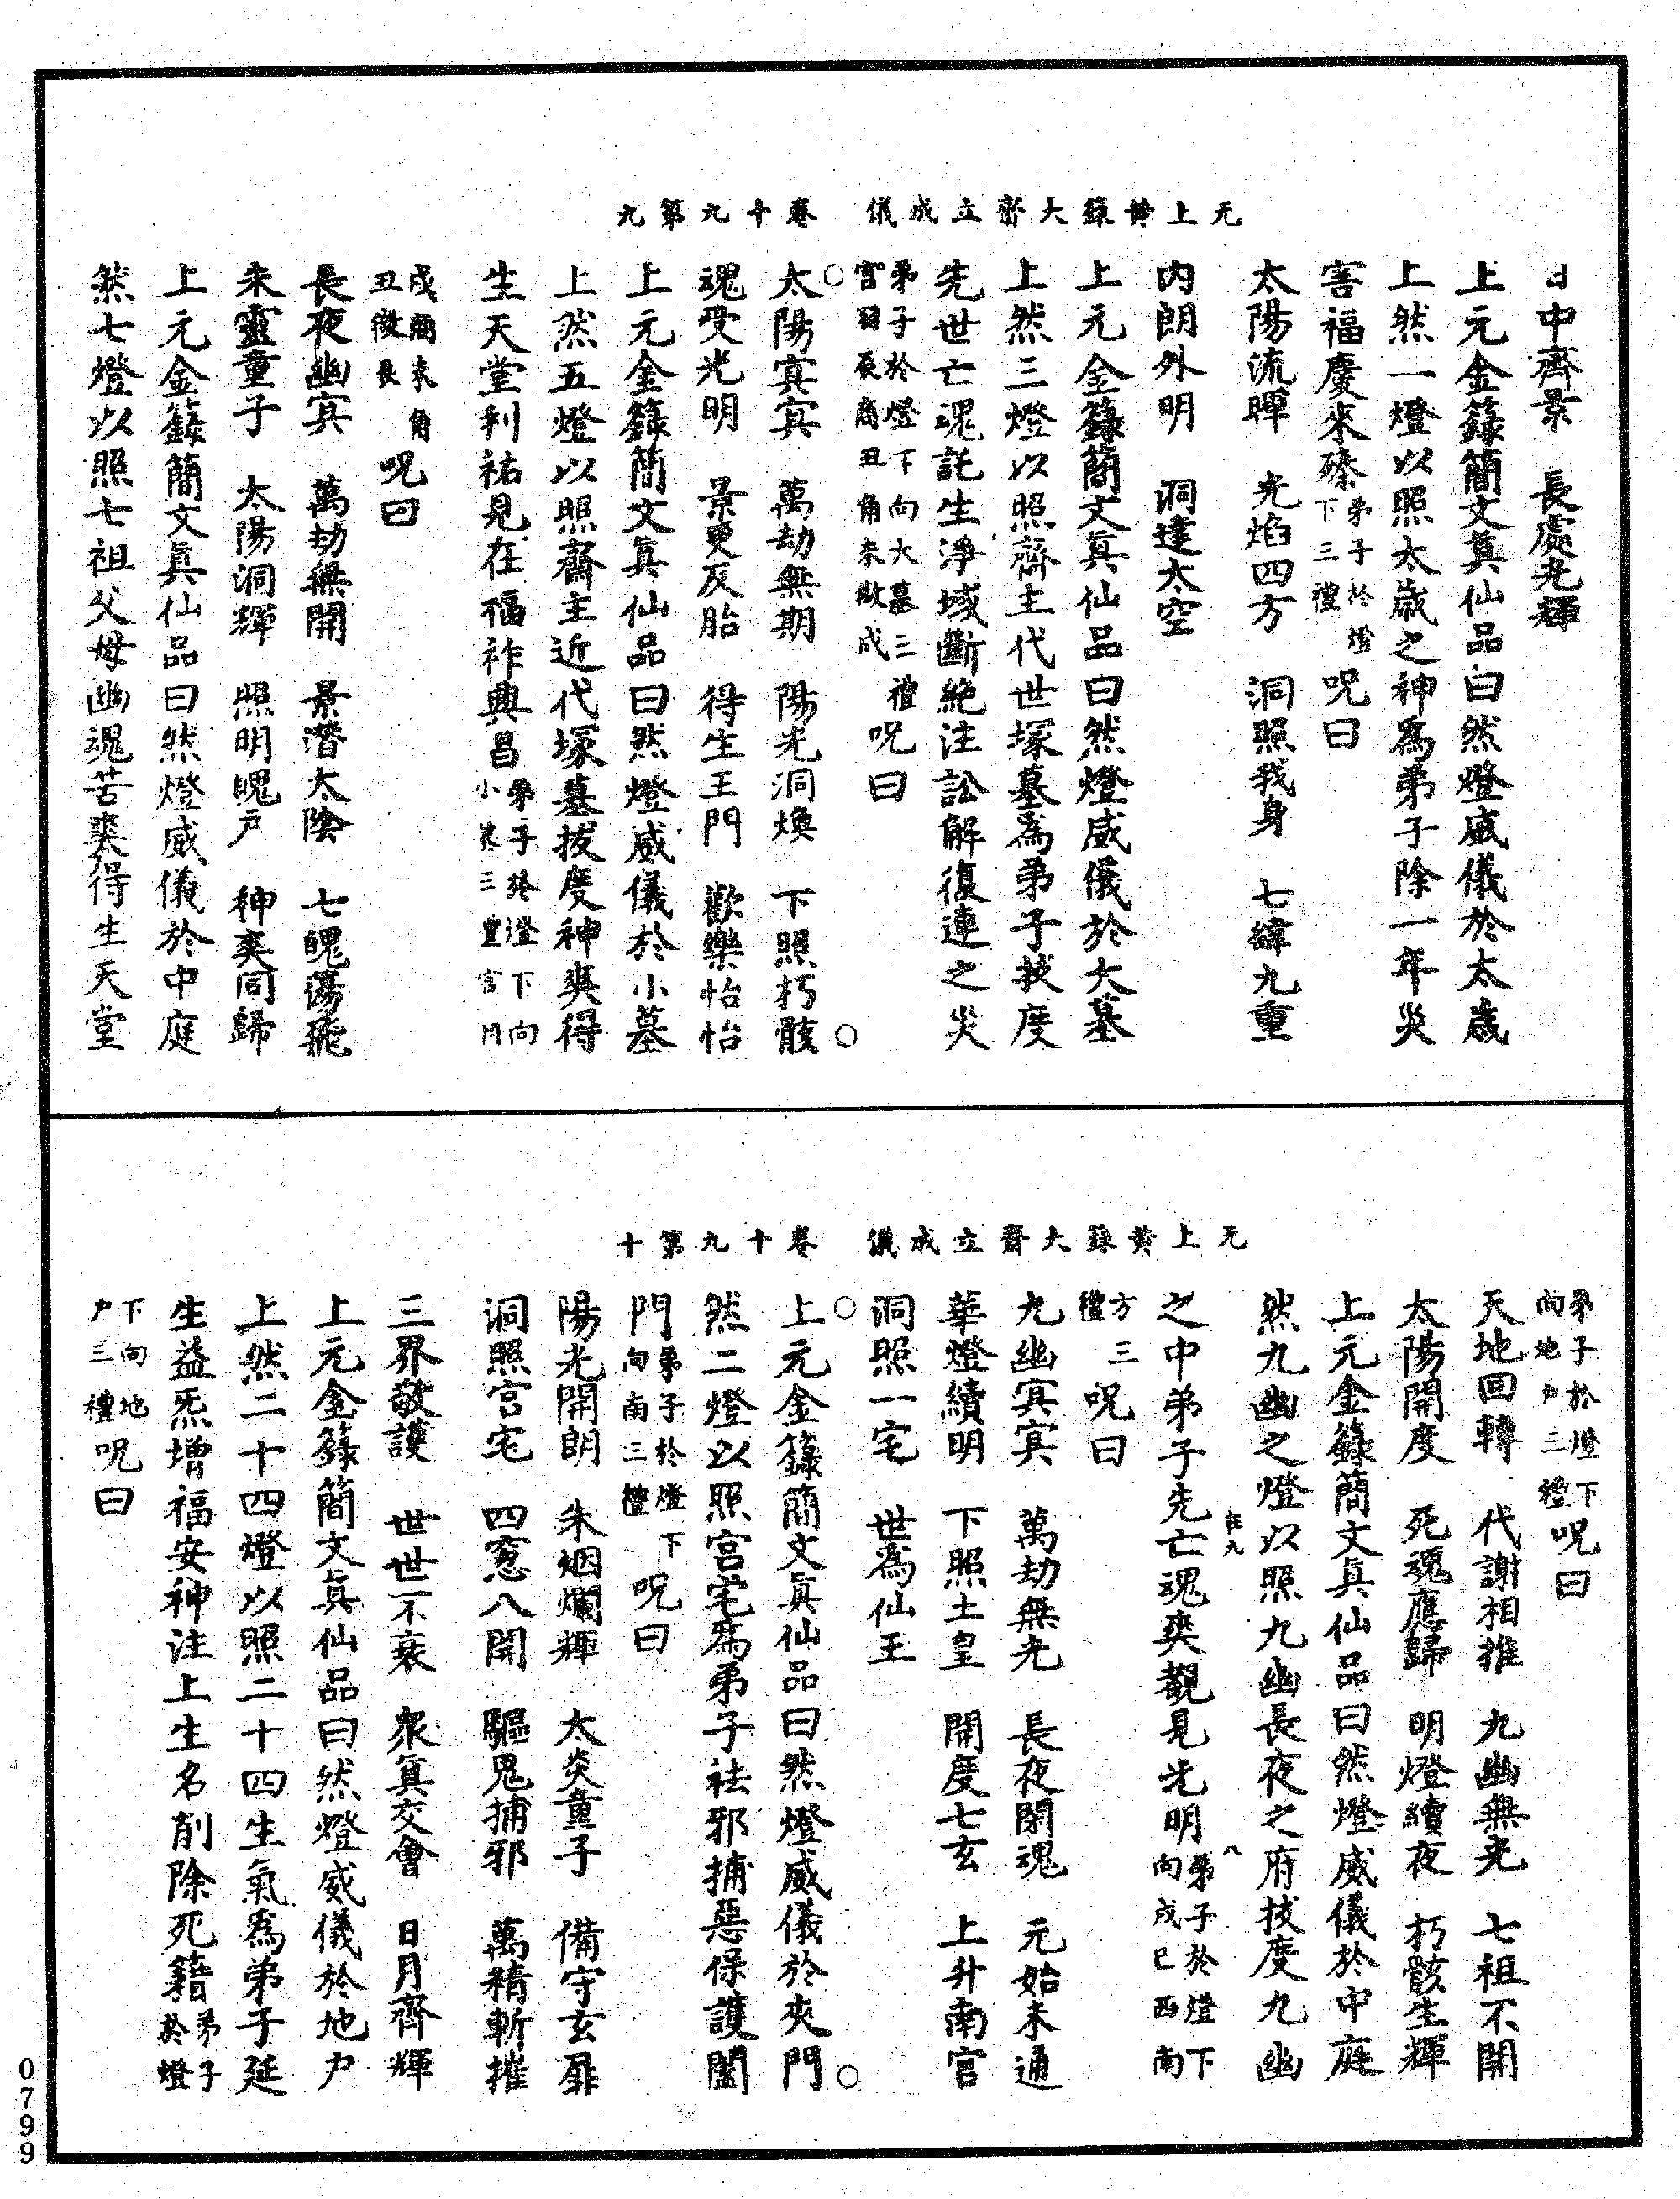 元上黃籙大齋立成儀　卷十九第九
中齊景　長處光輝
上元金籙簡文真仙品曰然燈威儀於太歲
上然一燈以照太歲之神為弟子除一年災
害福慶來臻弟子於燈下三禮　呪曰
太陽流暉　光焰四方　洞照我身　七緯九重
內朗外明　洞達太空
上元金籙簡文真仙品曰然燈威儀於大墓
上然三燈以照齊主代世塚墓為弟子拔度
先世亡魂託生淨域斷絶注訟解復連之災
弟子於燈下向大墓三禮宮羽辰商丑角未徵戌　呪曰
太陽寘寘　萬劫無期　陽光洞煥　下照朽骸
魂受光明　景更反胎　得生王門　歡樂怡怡
上元金籙簡文真仙品曰然燈威儀於小墓
上然五燈以照齋主近代塚墓拔度神爽得
生天堂利祐見在福祚興昌弟子於燈下向小墓三豊宮月
戌商未角丑徵辰　呪曰
長夜幽寘　萬劫無開　景潛太陰　七魄蕩飛
朱靈童子　太陽洞輝　照明魄戶　神爽同歸
上元金籙簡文真仙品曰然燈威儀於中庭
然七燈以照七祖父母幽魂苦爽得生天堂
元上黃籙大齋立成儀　卷十九第十
弟子於燈下向地戶三禮　呪曰
天地回轉　代謝相推　九幽無光　七祖不開
太陽開度　死魂應歸　明燈續夜　朽骸生輝
上元金籙簡文真仙品曰然燈威儀於中庭
然九幽之燈以照九幽長夜之府拔度九幽
之中弟子先亡魂爽覩見光明弟子於燈下向戌巳西南
方三禮　呪曰
九幽寘寘　萬劫無光　長夜閑魂　元始未通
華燈續明　下照土皇　開度七玄　上升南宮
洞照一宅　世為仙王
上元金籙簡文真仙品曰然燈威儀於夾門
然二燈以照宮宅為弟子祛邪捕惡保護闔
門弟子於燈下向南三禮　呪曰
陽光開朗　朱烟爛輝　太炎童子　備守玄扉
洞照宮宅　四窓八開　驅鬼捕邪　萬精斬摧
三界敬護　世世不衰　衆真交會　日月齊輝
上元金籙簡文真仙品曰然燈威儀於地戶
上然二十四燈以照二十四生氣為弟子延
生益炁增福安神注上生名削除死籍弟子於燈
下向地戶三禮　呪曰
八
0799